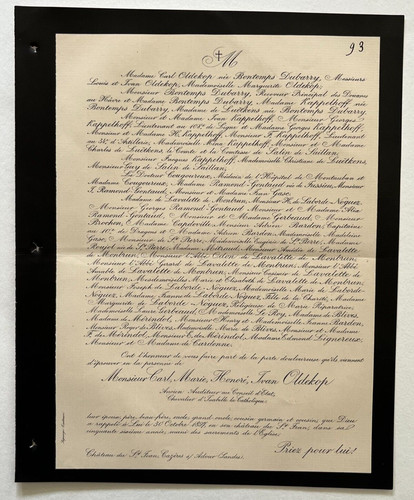 93
M
Madame Carl Oldekop née Bontemps Dubarry, Messieurs
Louis et Ivan Oldekop, Mademoiselle Marguerite Oldekop,
Monsieur Bontemps Dubarry, Receveur Principal des Douanes
au Hâvre et Madame Bontemps Dubarry, Madame Kappelhoff née
Bontemps Dubarry, Madame de Luetkens née Bontemps Dubarry,
Monsieur et Madame Ivan Kappelhoff, Monsieur Georges
Kappelhoff, Lieutenant au 108e de Ligne et Madame Georges Kappelhoff,
Monsieur et Madame H. Kappelhoff, Monsieur F. Kappelhoff, Lieutenant
au 34e d'Artillerie, Mademoiselle Nina Kappelhoff, Monsieur et Madame
Charles de Luetkens, le Comte et la Comtesse de Galen de Saillan,
Monsieur Jacques Kappelhoff, Mademoiselle Christiane de Luetkens,
Monsieur Guy de Galen de Saillan,
Le Docteur Cougoureux, Médecin de l'Hôpital de Montauban et
Madame Cougoureux, Madame Ramond-Gontaud née de Jussieu, Monsieur
J. Ramond-Gontaud, Monsieur et Madame Jean Gase,
Madame de Lavalette de Montbrun, Monsieur H. de Laborde-Noguez,
Monsieur Georges Ramond-Gontaud, Monsieur et Madame
Ramond-Gontaud, Monsieur et Madame Gerbeaud, Monsieur
Brochon, Madame Capdeville, Monsieur Barden, Capitaine
au 10e de Dragons et Madame Adrien Barden, Mademoiselle Madeleine
Gase, Monsieur de St Pierre, Mademoiselle Eugénie de St Pierre, Madame
Monsieur Amédée de Lavalette
de Montbrun, Monsieur l'Abbé Odon de Lavalette de Montbrun,
Monsieur l'Abbé Gérard de Lavalette de Montbrun, Monsieur l'Abbé
de Lavalette de Montbrun, Monsieur Casimir de Lavalette de
Montbrun, Mesdemoiselles Marie et Elisabeth de Lavalette de Montbrun,
Monsieur Joseph de Laborde-Noguez, Mademoiselle Marie de Laborde-
Noguez, Madame de Laborde-Noguez Fille de la Charité, Madame
Marguerite de Laborde-Noguez, Religieuse de Marie Réparatrice,
Mademoiselle Laure Gerbeaud, Mademoiselle Le Roy, Madame de Blives,
Madame de Mérindol, Monsieur Henry et Mademoiselle Emma Barden,
Monsieur Roger de Blives, Mademoiselle Marie de Blives, Monsieur et Madame
F. de Mérindol, Monsieur E. de Mérindol, Madame Edmond Ligneroux,
Monsieur et Madame de Cardenne.
Ont l'honneur de vous faire part de la perte douloureuse qu'ils viennent
d'éprouver en la personne de
Monsieur Carl, Marie, Honoré, Ivan Oldekop
Ancien Auditeur au Conseil d'Etat,
Chevalier d'Isabelle la Catholique,
leur époux, père, beau-frère, oncle, grand-oncle, cousin-germain et cousin, que Dieu
a rappelé à Lui le 30 Octobre 1897, en son château des Sts Jean, dans sa
cinquante sixième année, muni des sacrements de l'Eglise.
Priez pour lui!
Château des Sts Jean, Cazères s/ Adour Landes.